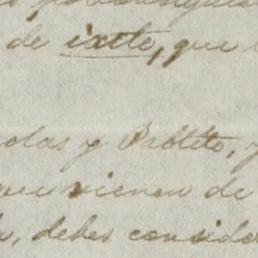 de ixtle, que
y Pablito, y
que vienen de
debes conside